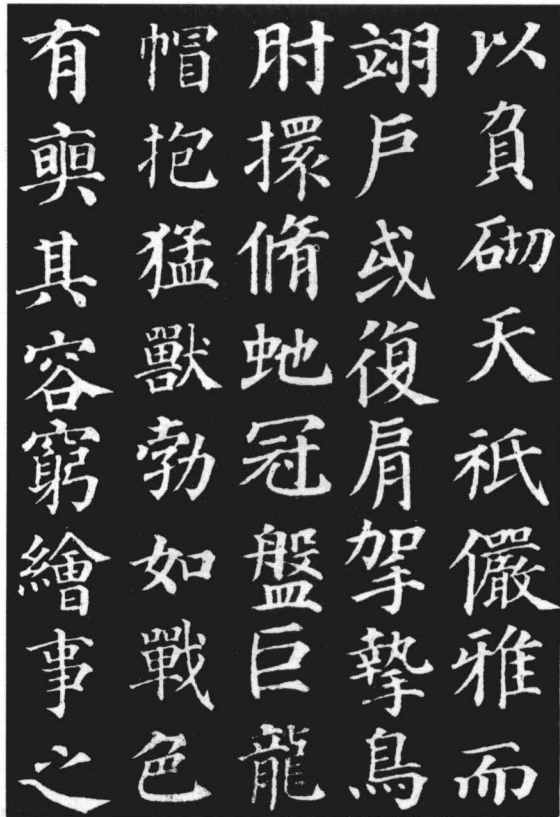 以負砌天祇儼雅而
翊戶或復肩挐摯鳥
肘擐脩虵冠盤巨龍
帽抱猛獸勃如戰色
有奭其容窮繪事之